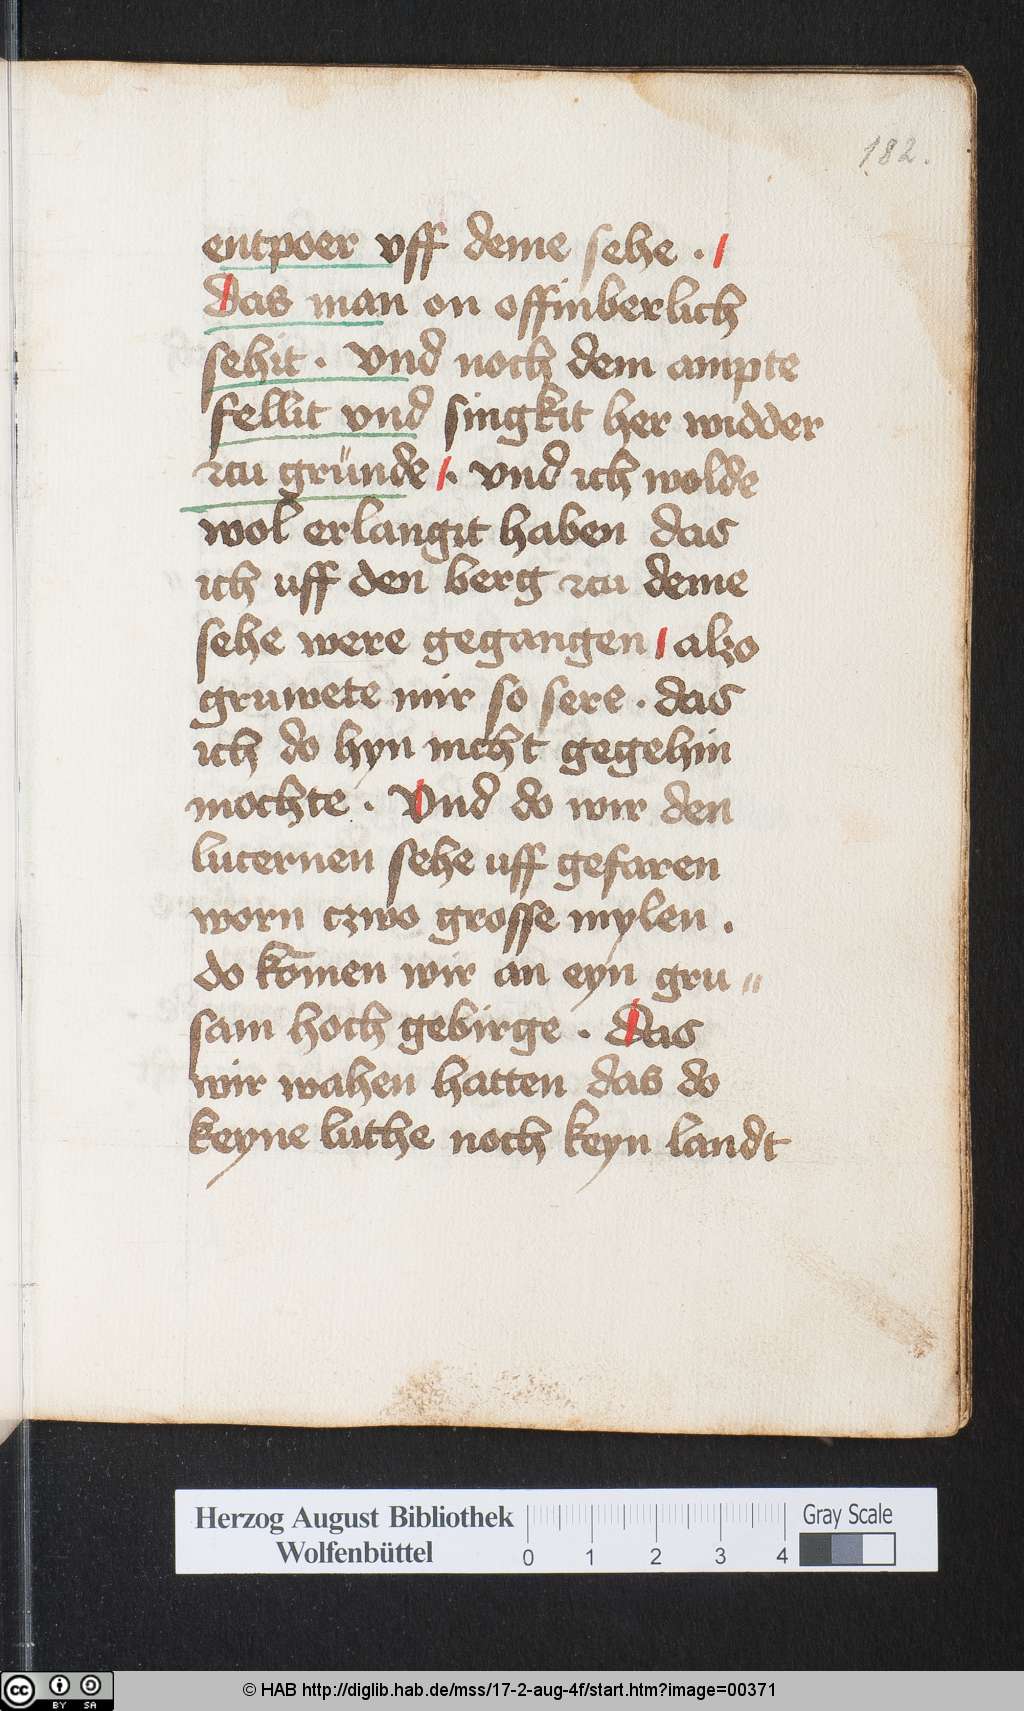 182.
entpoer vff deme sehe .
Das man on offinberlich
sehit . vnd noch dem ampte
fellit vnd singkit her widder
czu gründe . vnd ich wolde
wol erlangit haben das
ich uff den berg czu deme
sehe were gegangen also
gruwete mir so sere . das
ich do hyn nicht gegehin
mochte . Vnd do wir den
lucernen sehe uff gefaren
worn czwo grosse mylen .
do kōmen wir an eyn gru〃
sam hoch gebirge . Das
wir wahen hatten das do
keyne luthe noch keyn landt
Herzog August Bibliothek
Wolfenbüttel
0 1 2 3 4
Gray Scale
cc BY SA
© HAB http://diglib.hab.de/mss/17-2-aug-4f/start.htm?image=00371